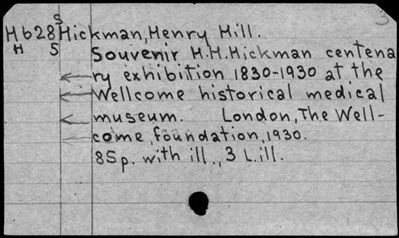 S 3
H628 Hickman, Henry Hill.
H S Souvenir H.H.Hickman centena
ry exhibition 1830-1930 at the
Wellcome historical medical
museum. London, The Well-
come, foundation, 1930.
85p. with ill., 3 L.ill.